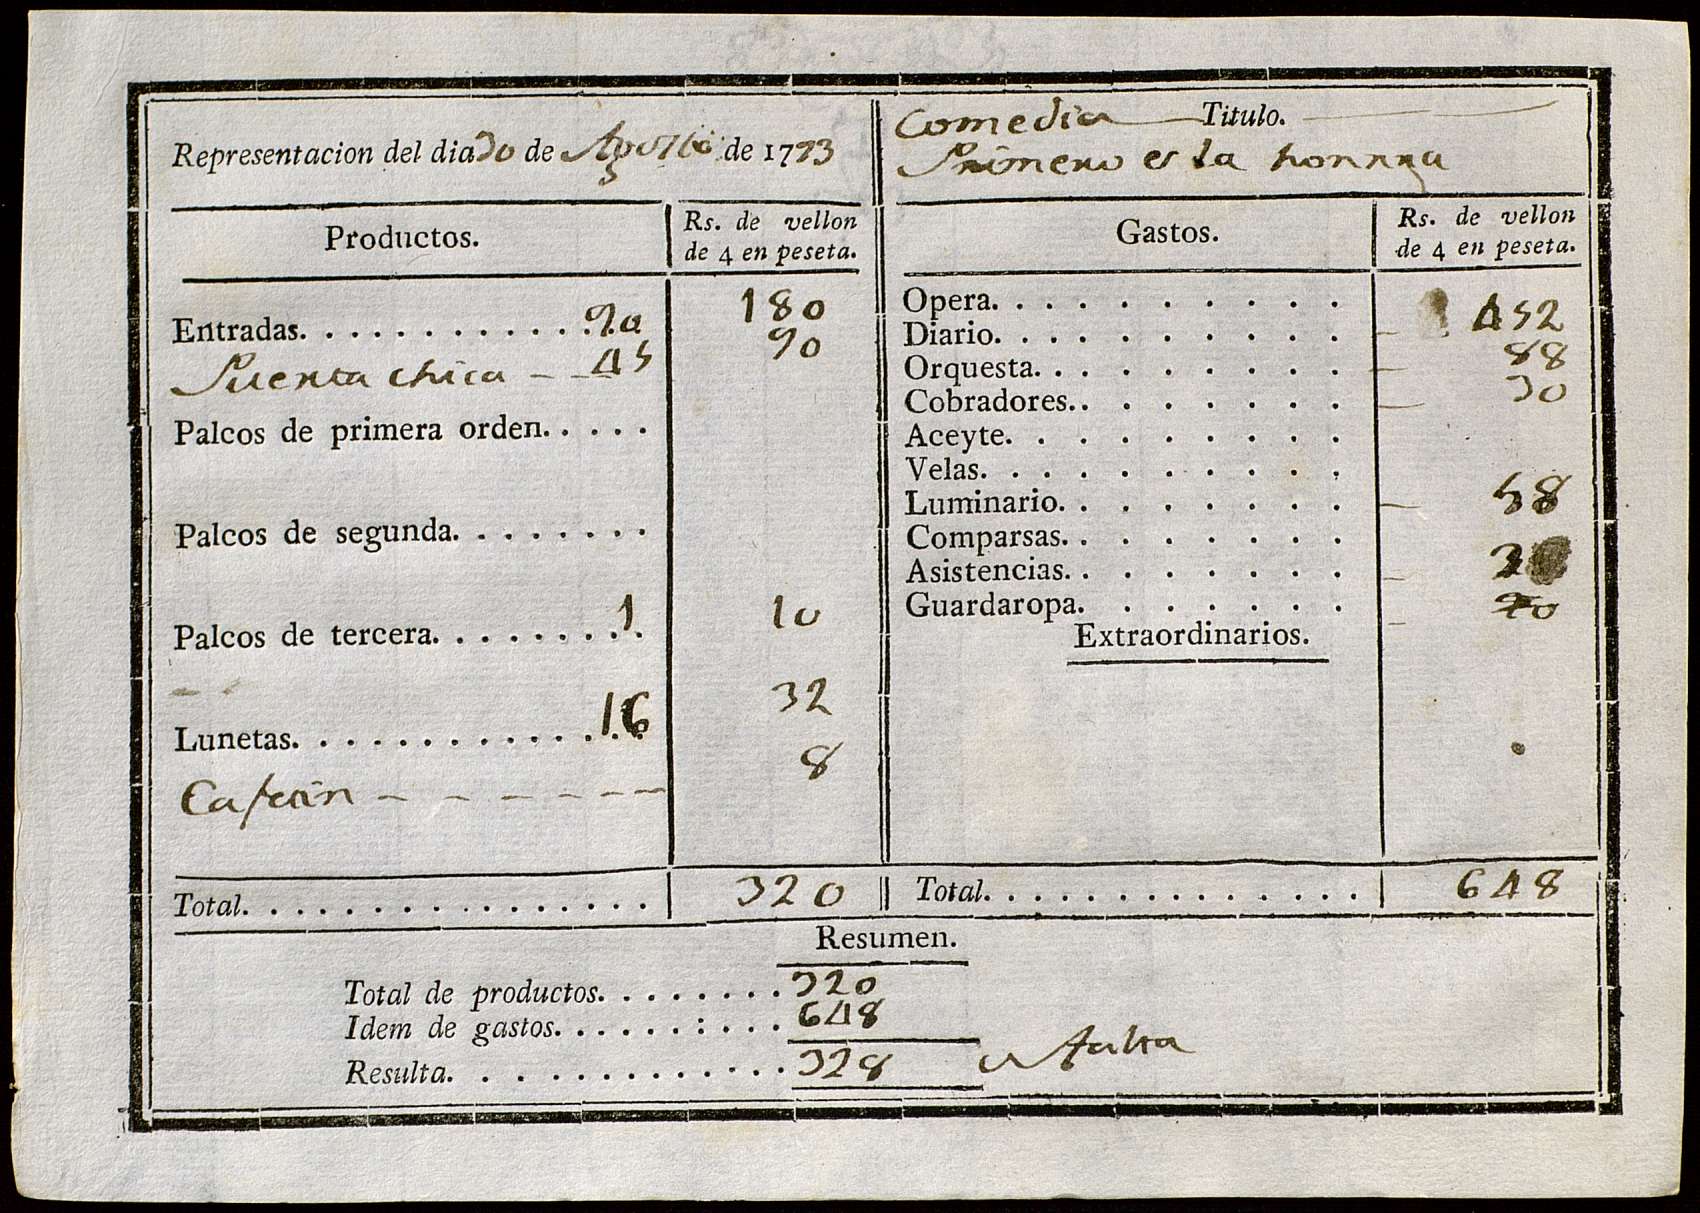 Representacion del dia 30 de Agosto de 1793
Comedia Titulo.
Primero es la honrra
Productos.
Rs. de vellon
de 4 en peseta.
Entradas. 90 180
Puerta chica 45 90
Palcos de primera orden.
Palcos de segunda.
Palcos de tercera. 1 10
Lunetas. 16 32
Cafetin 8
Total. 320
Gastos.
Rs. de vellon
de 4 en peseta.
Opera.
Diario. 452
Orquesta. 88
Cobradores. 30
Aceyte.
Velas.
Luminario. 58
Comparsas.
Asistencias.
Guardaropa. 20
Extraordinarios.
Total. 648
Resumen.
Total de productos. 320
Idem de gastos. 648
Resulta. 328 falta